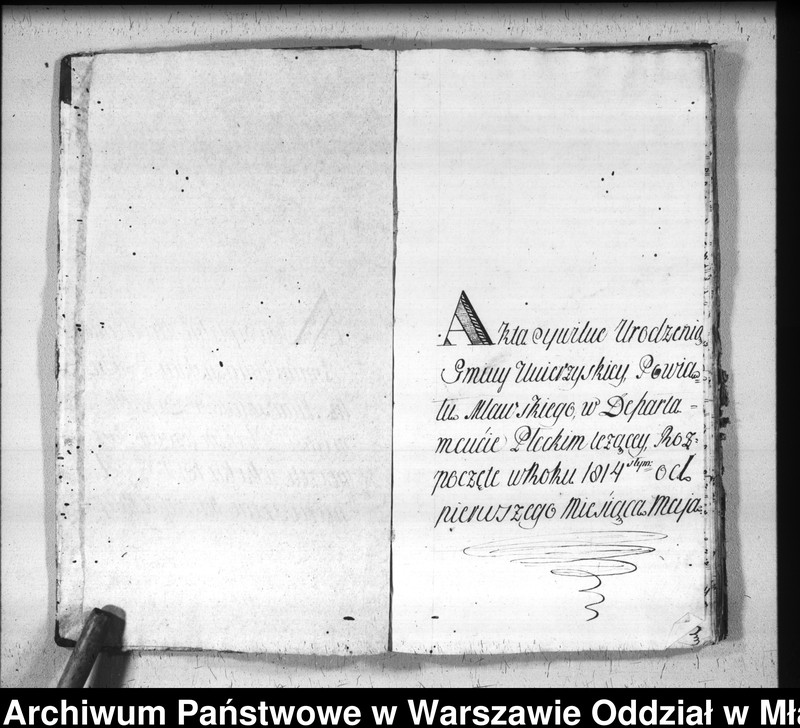 Akta cywilne Urodzenia
Gminy Unierzyskiey, Powia=
tu Mławskiego, w Departa=
mencie Płockim leżącey, Roz=
poczęte w Roku 1814 stym= od
pierwszego Miesiąca Maja.
3
Archiwum Państwowe w Warszawie Oddział w Mła